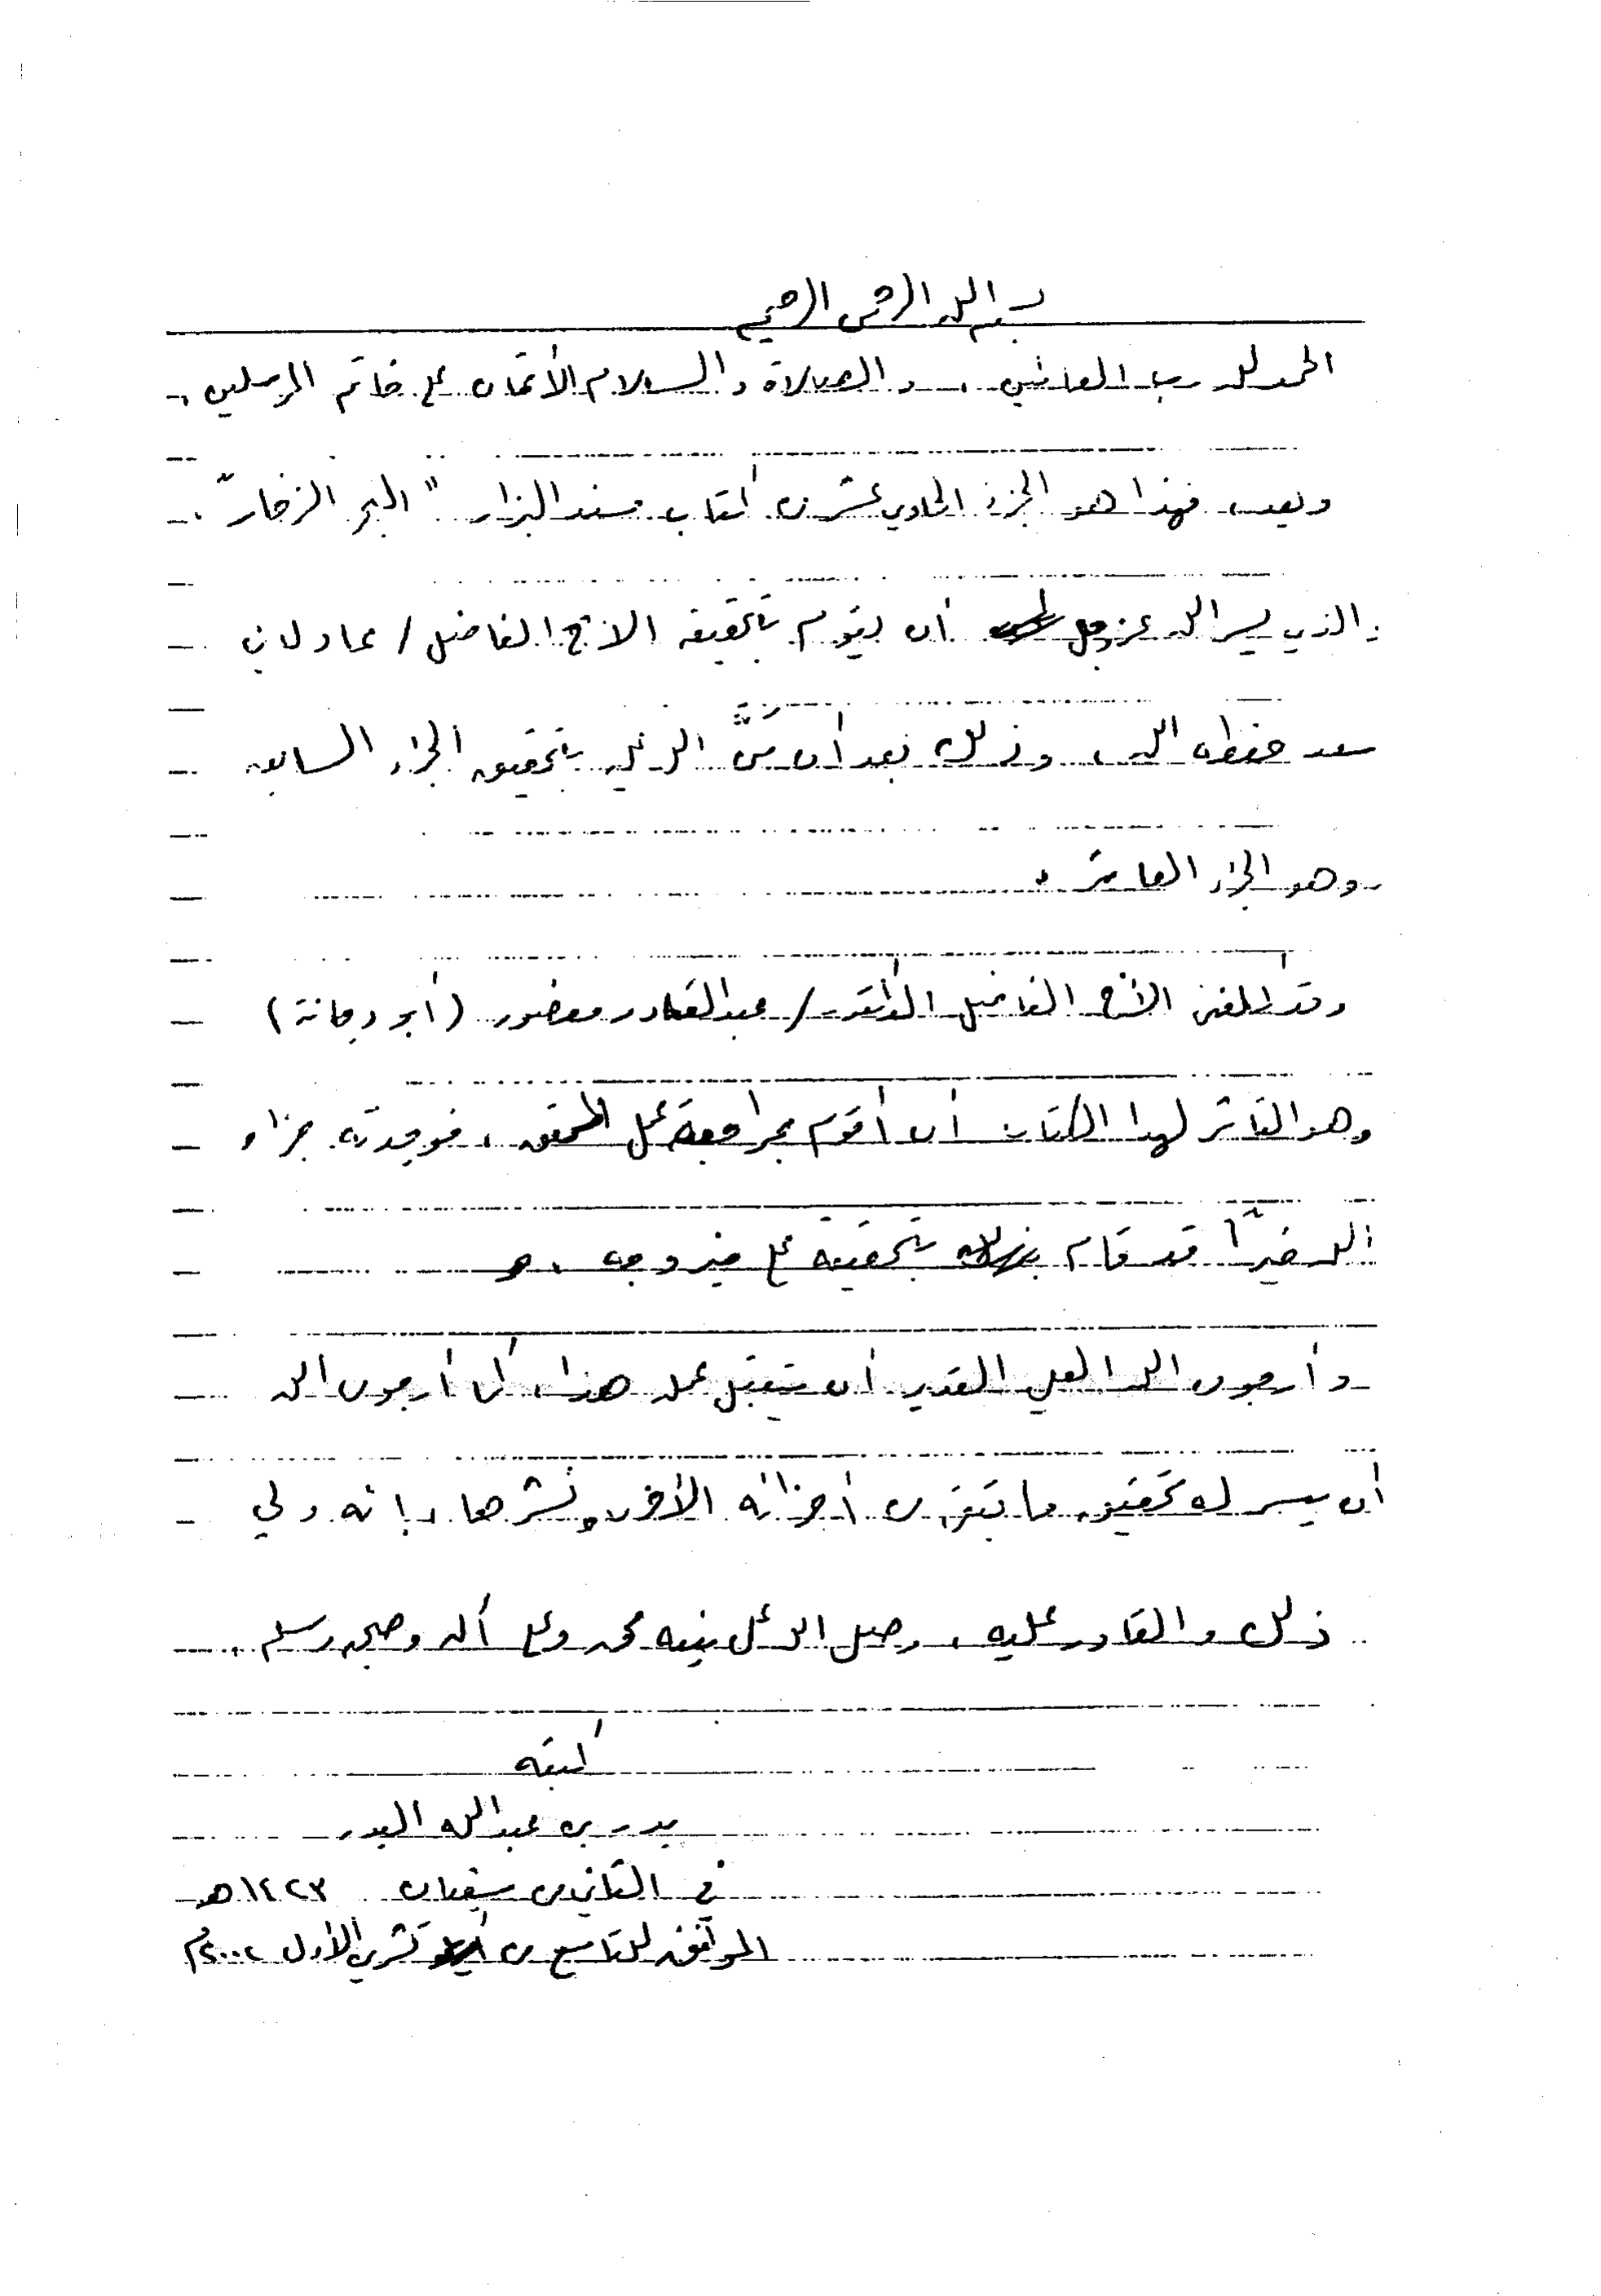 بسم الله الرحمن الرحيم
الحمد لله رب العالمين ، والصلاة والسلام الأتمان على خاتم المرسلين ،
وبعد ، فهذا هو الجزء الحادي عشر من كتاب مسند البزار " البحر الزخار " .
الذي يسر الله عز وجل أن يقوم بتحقيقه الأخ الفاضل / عادل بن
سعد حفظه الله ، وذلك بعد أن منَّ الله عليه بتحقيق الجزء السابق
وهو الجزء العاشر .
وقد كلفني الأخ الفاضل الدكتور / عبد القادر منصور ( أبو ريحانة )
وهو الناشر لهذا الكتاب أن أقوم بمراجعة عمل المحقق ، فوجدته جزاه
الله خيرًا قد قام بتحقيقه على خير وجه .
وأرجو من الله العلي القدير أن يتقبل عمله هذا ، كما أرجو من الله
أن ييسر له تحقيق ما تبقى من أجزائه الأخرى ونشرها ، إنه ولي
ذلك والقادر عليه ، وصلى الله على نبيه محمد وعلى آله وصحبه وسلم .
كتبه
بدر بن عبد الله البدر
في الثاني من شعبان ١٤٢٣هـ
الموافق للتاسع من تشرين الأول ٢٠٠٢م